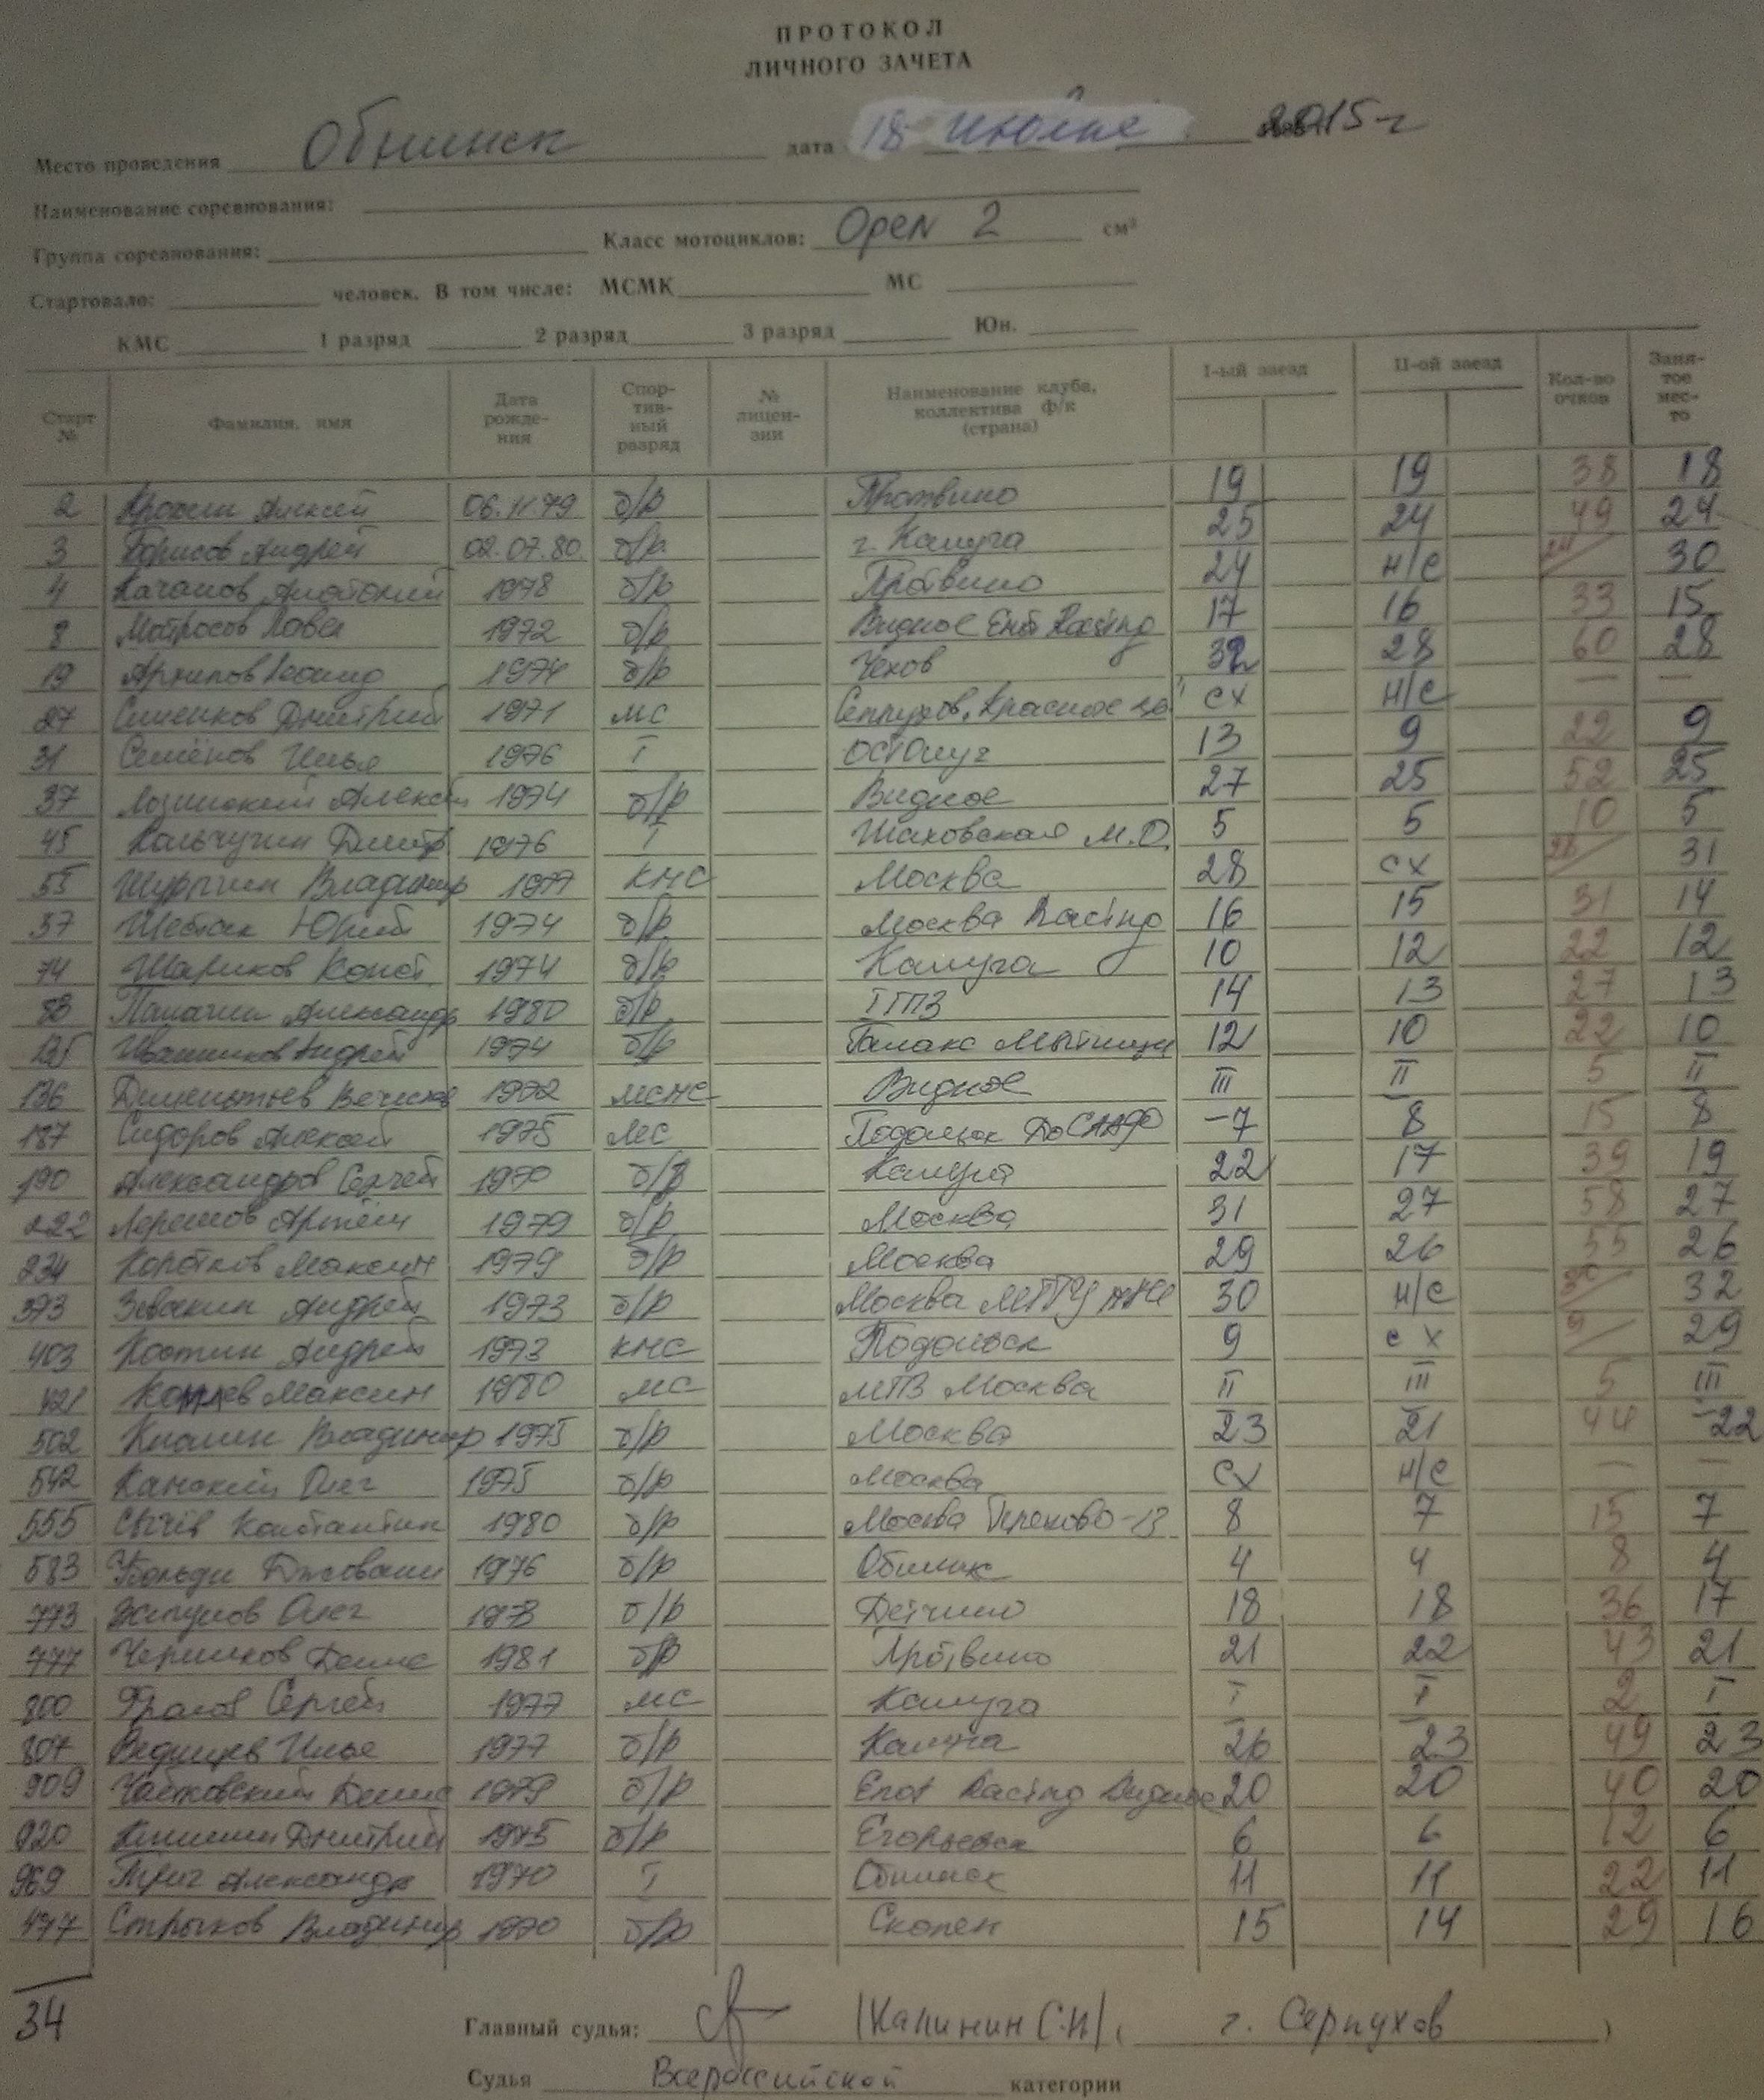 ПРОТОКОЛ
ЛИЧНОГО ЗАЧЕТА
Место проведения Обнинск дата 18 июля 2015 г
Наименование соревнования:
Группа соревнования: Класс мотоциклов: Open 2 см³
Стартовало: человек. В том числе: МСМК МС
КМС 1 разряд 2 разряд 3 разряд Юн.
Старт № Фамилия, имя Дата рожде-ния Спор-тив-ный разряд № лицен-зии Наименование клуба, коллектива ф/к (страна) I-ый заезд II-ой заезд Кол-во очков Заня-тое мес-то
2 Алексей 06.11.79 б/р Протвино 19 19 38 18
3 Борисов Андрей 02.07.80 б/р г. Калуга 25 24 49 24
4 Качанов Анатолий 1978 б/р Протвино 24 н/с 24 30
8 Матросов Павел 1972 б/р Видное Enot Racing 17 16 33 15
19 Архипов Леонид 1974 б/р Чехов 32 28 60 28
27 Дмитрий 1971 мс Серпухов, Красное сх н/с — —
31 Семёнов Илья 1976 I 13 9 22 9
37 Алексей 1974 б/р Видное 27 25 52 25
45 Кольчугин Дмитр 1976 I Шаховская М.О. 5 5 10 5
55 Владимир 1977 КМС Москва 28 сх 28 31
57 Шестак Юрий 1974 б/р Москва Racing 16 15 31 14
74 Шариков Конст. 1974 б/р Калуга 10 12 22 12
83 Александр 1980 б/р ГПЗ 14 13 27 13
125 Ивашиков Андрей 1974 б/р Мытищи 12 10 22 10
136 1972 Видное III II 5 II
187 Сидоров Алексей 1975 мс Подольск ДОСААФ 7 8 15 8
190 Александров Сергей 1970 б/р Калуга 22 17 39 19
222 Артём 1979 б/р Москва 31 27 58 27
234 Коротков Максим 1979 б/р Москва 29 26 55 26
373 Зевакин Андрей 1973 б/р Москва 30 н/с 30 32
403 Костин Андрей 1973 КМС Подольск 9 сх 9 29
421 Максим 1980 мс МПЗ Москва II III 5 III
502 Владимир 1975 б/р Москва 23 21 44 22
542 Канский Олег 1975 б/р Москва сх н/с — —
555 Сычёв Константин 1980 б/р Москва 8 7 15 7
583 Убольди Джовани 1976 б/р Обнинск 4 4 8 4
773 Зипунов Олег 1978 б/р Детчино 18 18 36 17
777 Черников Денис 1981 б/р Протвино 21 22 43 21
800 Фролов Сергей 1977 мс Калуга I I 2 I
807 Ведищев Илья 1977 б/р Калуга 26 23 49 23
909 Чайковский Денис 1979 б/р Enot Racing Видное 20 20 40 20
920 Дмитрий 1975 б/р Егорьевск 6 6 12 6
969 Александр 1970 I Обнинск 11 11 22 11
477 Стрыков Владимир 1970 б/р Скопен 15 14 29 16
34
Главный судья: /Калинин С.Н/ ( г. Серпухов )
Судья Всероссийской категории